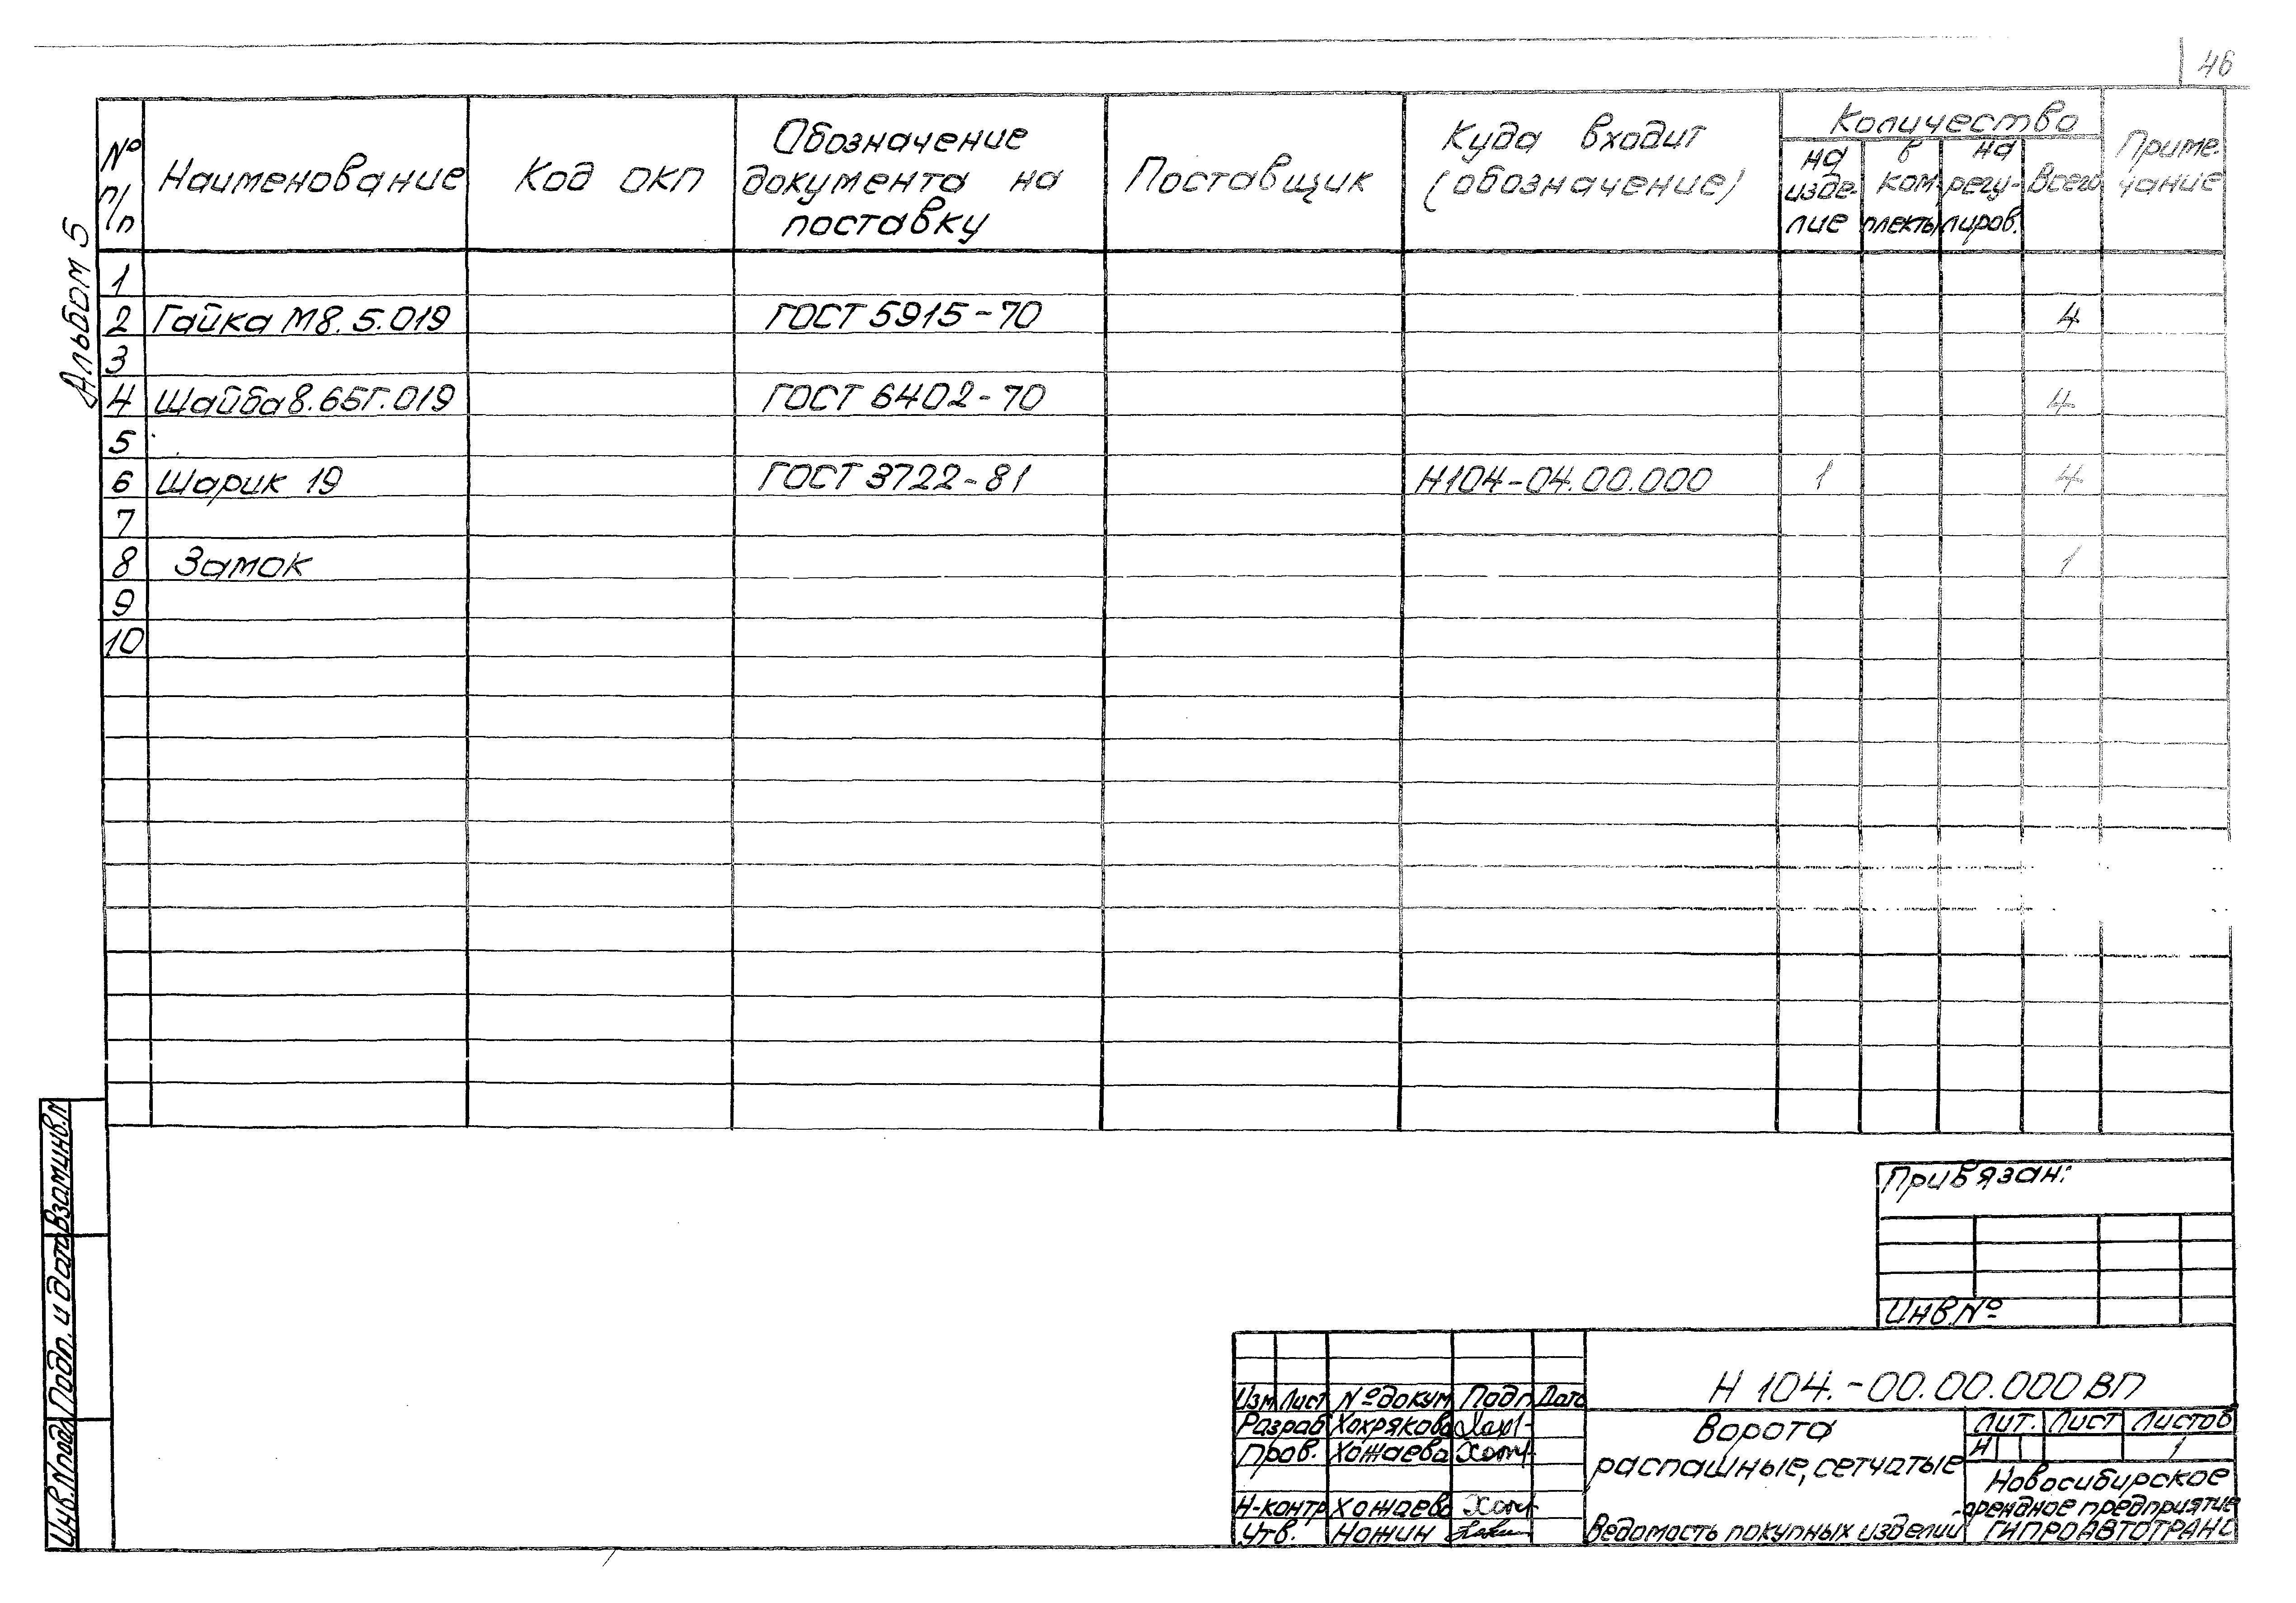 46
Альбом 5
№ п/п
Наименование
Код ОКП
Обозначение
документа на
поставку
Поставщик
Куда входит
(обозначение)
Количество
на изде- лие
в ком- плекты
на регу- лиров.
Всего
Приме-
чание
1
2 Гайка М8.5.019 ГОСТ 5915-70 4
3
4 Шайба 8.65Г.019 ГОСТ 6402-70 4
5
6 Шарик 19 ГОСТ 3722-81 Н104-04.00.000 1 4
7
8 Замок 1
9
10
Взам.инв.№
Подп. и дата
Инв.№подл
Привязан:
Инв.№
Изм Лист № докум Подп Дата
Разраб Хохрякова
Пров. Хожаева
Н-контр Хожаева
Утв. Ножин
Н 104.-00.00.000 ВП
Ворота
распашные, сетчатые
Ведомость покупных изделий
Лит. Лист Листов
И 1
Новосибирское
арендное предприятие
ГИПРОАВТОТРАНС